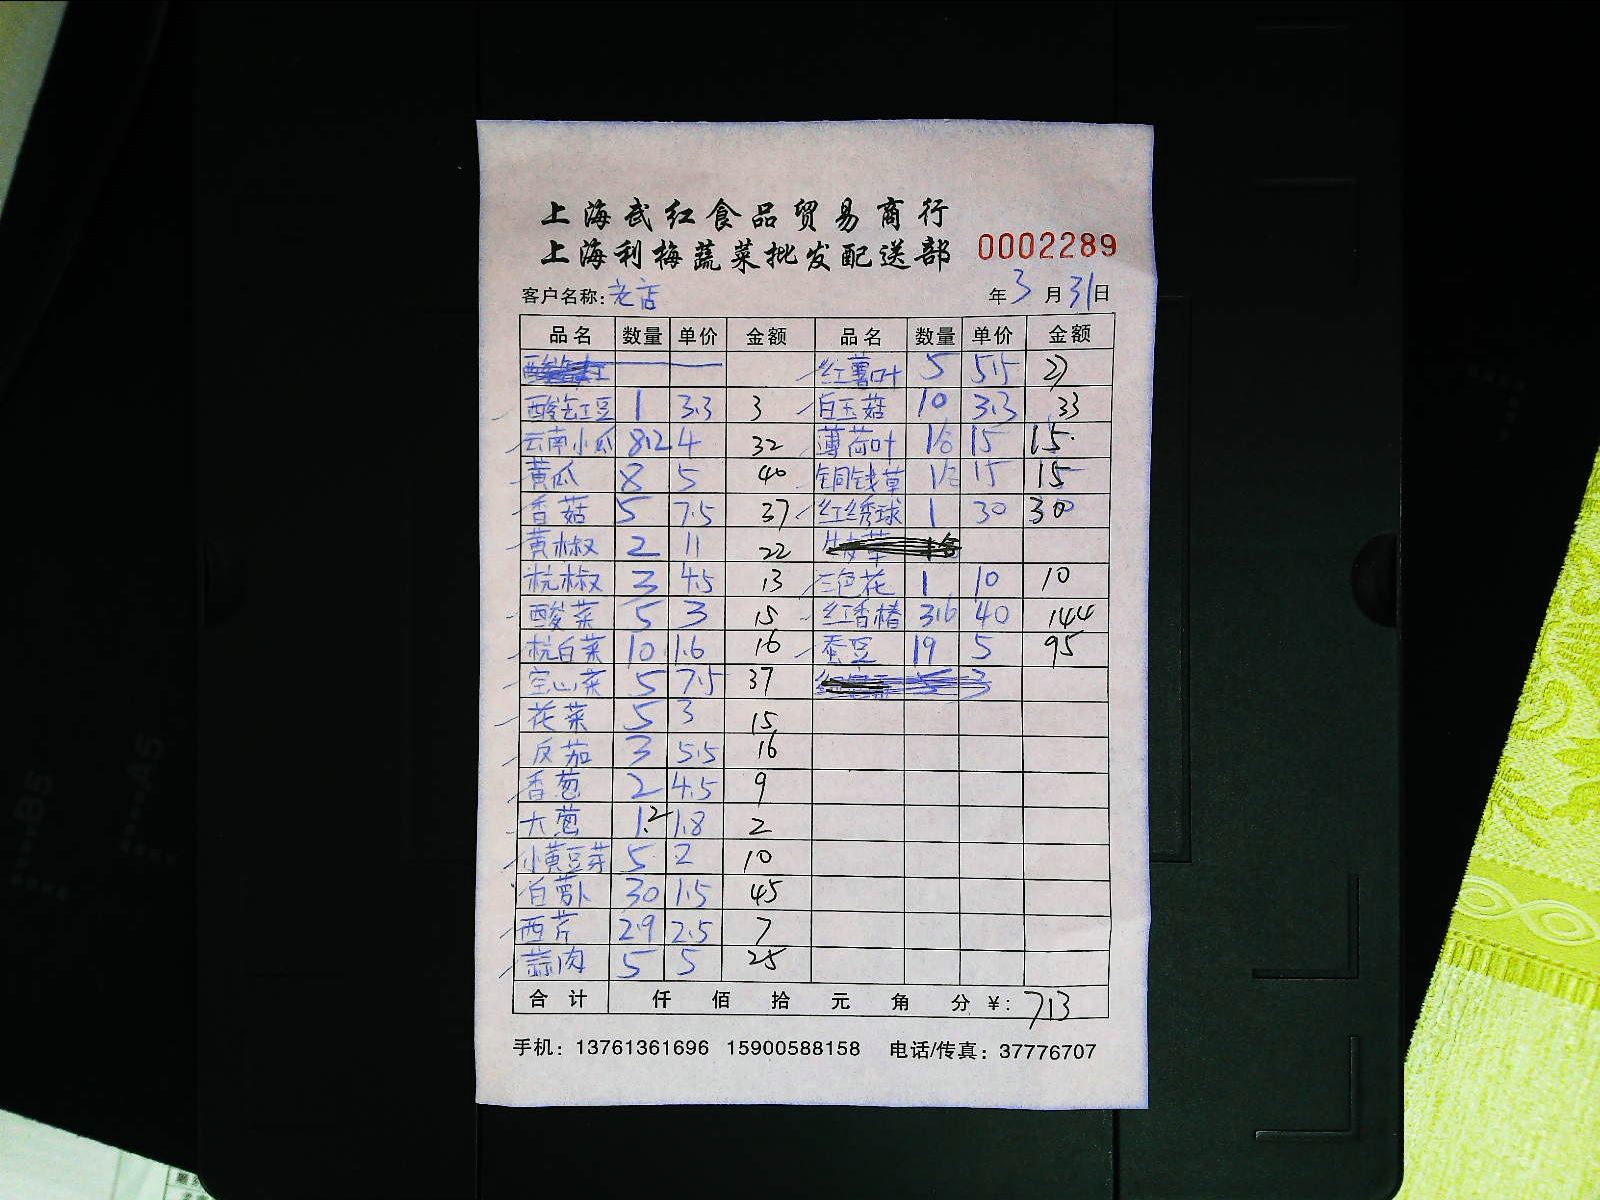 上海武红食品贸易商行
上海利梅蔬菜批发配送部 0002289
客户名称: 老店 年 3 月 31 日
品名 数量 单价 金额 品名 数量 单价 金额
红薯叶 5 5.5 27
酸缸豆 1 3.3 3 白玉菇 10 3.3 33
云南小瓜 8.2 4 32 薄荷叶 1/2 15 15
黄瓜 8 5 40 铜钱草 1/2 15 15
香菇 5 7.5 37 红绣球 1 30 30
黄椒 2 11 22
杭椒 3 4.5 13 三色花 1 10 10
酸菜 5 3 15 红香椿 3.6 40 144
杭白菜 10 1.6 16 蚕豆 19 5 95
空心菜 5 7.5 37
花菜 5 3 15
反茄 3 5.5 16
香葱 2 4.5 9
大葱 1.2 1.8 2
小黄豆芽 5 2 10
白萝卜 30 1.5 45
西芹 2.9 2.5 7
蒜肉 5 5 25
合计 仟 佰 拾 元 角 分 ¥: 713
手机: 13761361696 15900588158 电话/传真: 37776707